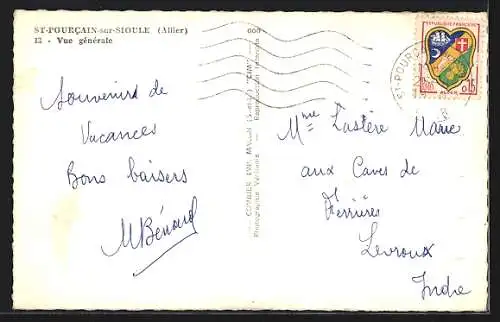 ST-POURÇAIN-sur-SIOULE (Allier)
13 - Vue générale
Souvenirs de
Vacances
Bons baisers
MBénard
COMBIER IMP. MACON
Photographie Véritable
Reproduction Interdite
REPUBLIQUE FRANÇAISE
ALGER
0,15
ST-POUR
Mme Lastère Marie
aux Caves de
Ferrières
Levroux
Indre